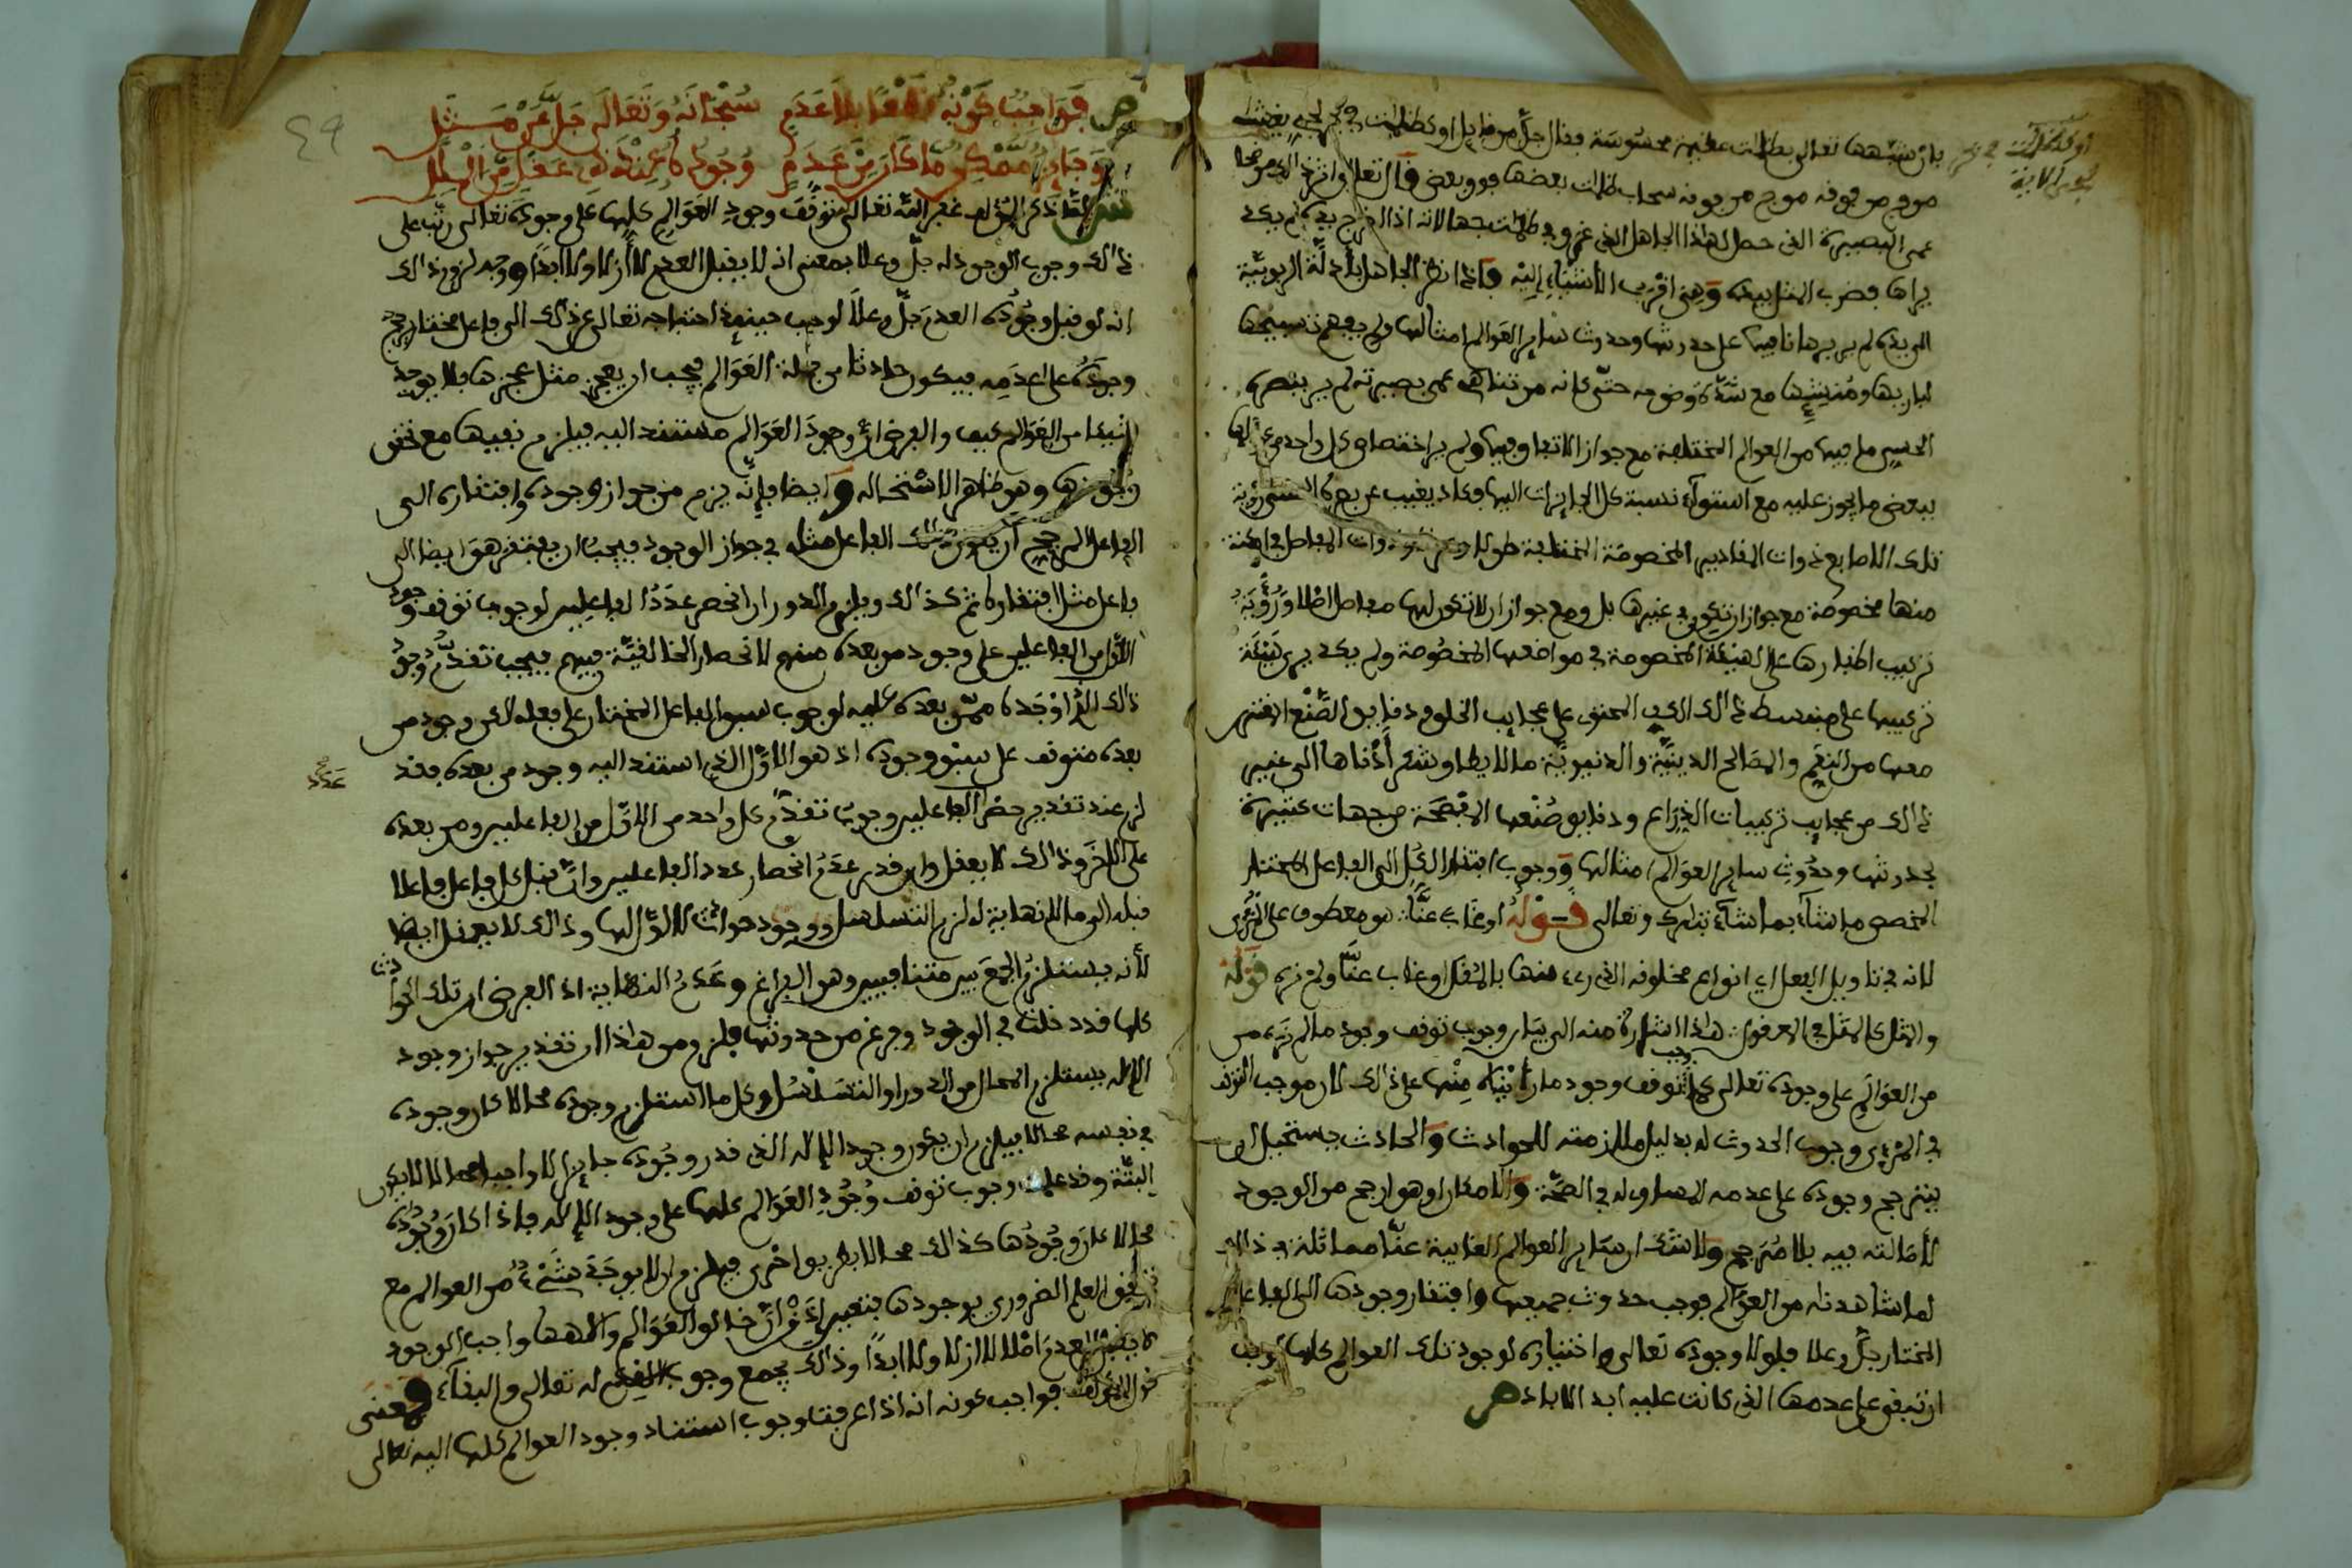 بان شبهها تعالى بظلمات عظيمة محسوسة فقال جل من قايل او كظلمات في بحر لجي يغشيه
موج من فوقه موج من فوقه سحاب ظلمات بعضها فوق بعض
عمى البصيرة التي حصل لهذا الجاهل الذي غرق في ظلمات جهالاته اذا اخرج يده لم يكد
يراها فضرب المثل بيده وهي اقرب الاشياء اليه فاذا نظر الجاهل بادلة الربوبية
الى يده لم ير برهانا فيها على حدوثها وحدوث ساير العوالم امثالها ولم يفهم تسبيحها
لباريها ومنشيها مع شدة وضوحه حتى كانه من تناهي عمى بصيرته لم ير ببصره
الحسي ما فيها من العوالم المختلفة مع جواز الاتفاق فيها ولم ير اختصاص كل واحد من
ببعض ما يجوز عليه مع استواء نسبة كل الجايزات اليها وكاد يغيب عن بصره الحسي رؤية
تلك الاصابع ذوات المقادير المخصوصة المختلفة طولا وذوات المفاصل في امكنة
منها مخصوصة مع جواز ان تكون في غيرها بل ومع جواز ان لا تكون لها مفاصل اصلا ورؤية
تركيب اظفارها على الهيئة المخصوصة في مواضعها المخصوصة ولم يكد يرى هيئة
تركيبها على منبسط ذالك الكف المحتوي على عجايب الخلق ودقايق الصنع المقترن
معها من النعم والمصالح الدينية والدنيوية ما لا يطاق شكر ادناها الى غير
ذالك من عجايب تركيبات الذراع ودقايق صنعها المفصحة من جهات كثيرة
بحدوثها وحدوث ساير العوالم امثالها ووجوب افتقار الكل الى الفاعل المختار
المخصص ما شاء بما شاء تبارك وتعالى قوله او غاب عنا هو معطوف على المرءي
لانه في تاويل الفعل اي انواع مخلوقه الذي رءي منها بالمقل او غاب عنا ولم نره قوله
والمثل كالمثل في العرفون هذا اشارة منه الى بيان وجوب توقف وجود ما لم نره من
من العوالم على وجوده تعالى كما وجب توقف وجود ما رأيناه منها على ذالك لان موجب التوقف
في المرءي وجوب الحدوث له بدليل ملازمته للحوادث والحادث يستحيل ان
يترجح وجوده على عدمه المساوي له في الصحة والامكان او هو ارجح من الوجود
لأصالته فيه بلا مرجح ولا شك ان ساير العوالم الغايبة عنا مماثلة في ذالك
لما شاهدناه من العوالم فوجب حدوث جميعها وافتقار وجودها الى الفاعل
المختار جل وعلا فلولا وجوده تعالى واختياره لوجود تلك العوالم كلها لوجب
ان تبقى على عدمها الذي كانت عليه ابد الاباد ص
او كظلمات في بحر
لجي الاية
٤٩
ص فواجب كونه قطعا بلا عدم سبحانه وتعالى جل عن مثل
وجايز ممكن ما كان من عدم وجوده عند ذي عقل من الملل
ش لما ذكر المؤلف غفر الله تعالى توقف وجود العوالم كلها على وجوده تعالى رتب على
ذالك وجوب الوجود له جل وعلا بمعنى انه لا يقبل العدم لا أزلا ولا ابدا ووجه لزوم ذالك
انه لو قبل وجوده العدم جل وعلا لوجب حينئذ احتياجه تعالى عن ذالك الى فاعل مختار يرجح
وجوده على عدمه فيكون حادثا من جملة العوالم فيجب ان يعجز مثل عجزها فلا يوجد
شيئا من العوالم كيف والفرض ان وجود العوالم مستند اليه فيلزم نفيها مع تحقق
وجودها وهو ظاهر الاستحالة وايضا فانه يلزم من جواز وجوده وافتقاره الى
الفاعل المرجح ان يكون ذالك الفاعل مثله في جواز الوجود فيجب ان يفتقر هو ايضا الى
فاعل مثل افتقاره ثم كذالك ويلزم الدور ان انحصر عدد الفاعلين لوجوب توقف وجود
الاول من الفاعلين على وجود من بعده منهم لانحصار الخالقية فيهم فيجب تقدم وجود
ذالك الذي اوجده ممن بعده عليه لوجوب سبق الفاعل المختار على فعله لاكن وجود من
بعده متوقف على سبق وجوده اذ هو الاول الذي استند اليه وجود من بعده فقد
لزم عند تقدير حصر الفاعلين وجوب تقدم كل واحد من الاول من الفاعلين ومن بعده
على الاخر وذالك لا يعقل وان قدر عدم انحصار عدد الفاعلين وان قبل كل فاعل فاعلا
قبله الى ما لا نهاية له لزم التسلسل ووجود حوادث لا اول لها وذالك لا يعقل ايضا
لأنه يستلزم الجمع بين متنافيين وهو الفراغ وعدم النهاية اذ الفرض ان تلك الحوادث
كلها قد دخلت في الوجود وفرغ من حدوثها فلزم من هذا ان تقدير جواز وجود
الاله يستلزم المحال من الدور او التسلسل وكل ما استلزم وجوده محالا كان وجوده
في نفسه محالا فيلزم ان يكون وجود الاله الذي قدر وجوده جايزا لا واجبا محالا لا يكون
البتة وقد علمت وجوب توقف وجود العوالم كلها على وجود الاله فاذا كان وجوده
محالا كان وجودها كذالك محالا بطريق اخرى فيلزم ان لا يوجد شيء من العوالم مع
تحقق العلم الضروري بوجودها فتعين ان خالق العوالم والاهها واجب الوجود
لا يقبل العدم اصلا لا ازلا ولا ابدا وذالك يجمع وجوب القدم له تعالى والبقاء فمعنى
قول المؤلف فواجب كونه انه اذا عرفت وجوب استناد وجود العوالم كلها اليه تعالى
عدد